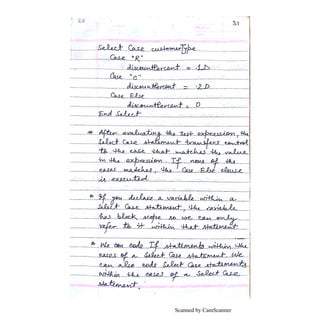 31
Select Case customerType
Case "R"
discountPercent = .1D
Case "C"
discountPercent = .2D
Case Else
discountPercent = 0
End Select
* After evaluating the test expression, the
Select Case statement transfers control
to the case that matches the value
in the expression. If none of the
cases matches, the Case Else clause
is executed
* If you declare a variable within a
Select Case statement, the variable
has block scope so we can only
refer to it within that statement
* We can code If statements within the
cases of a Select Case statement. We
can also code Select Case statements
within the cases of a Select Case
statement.
Scanned by CamScanner